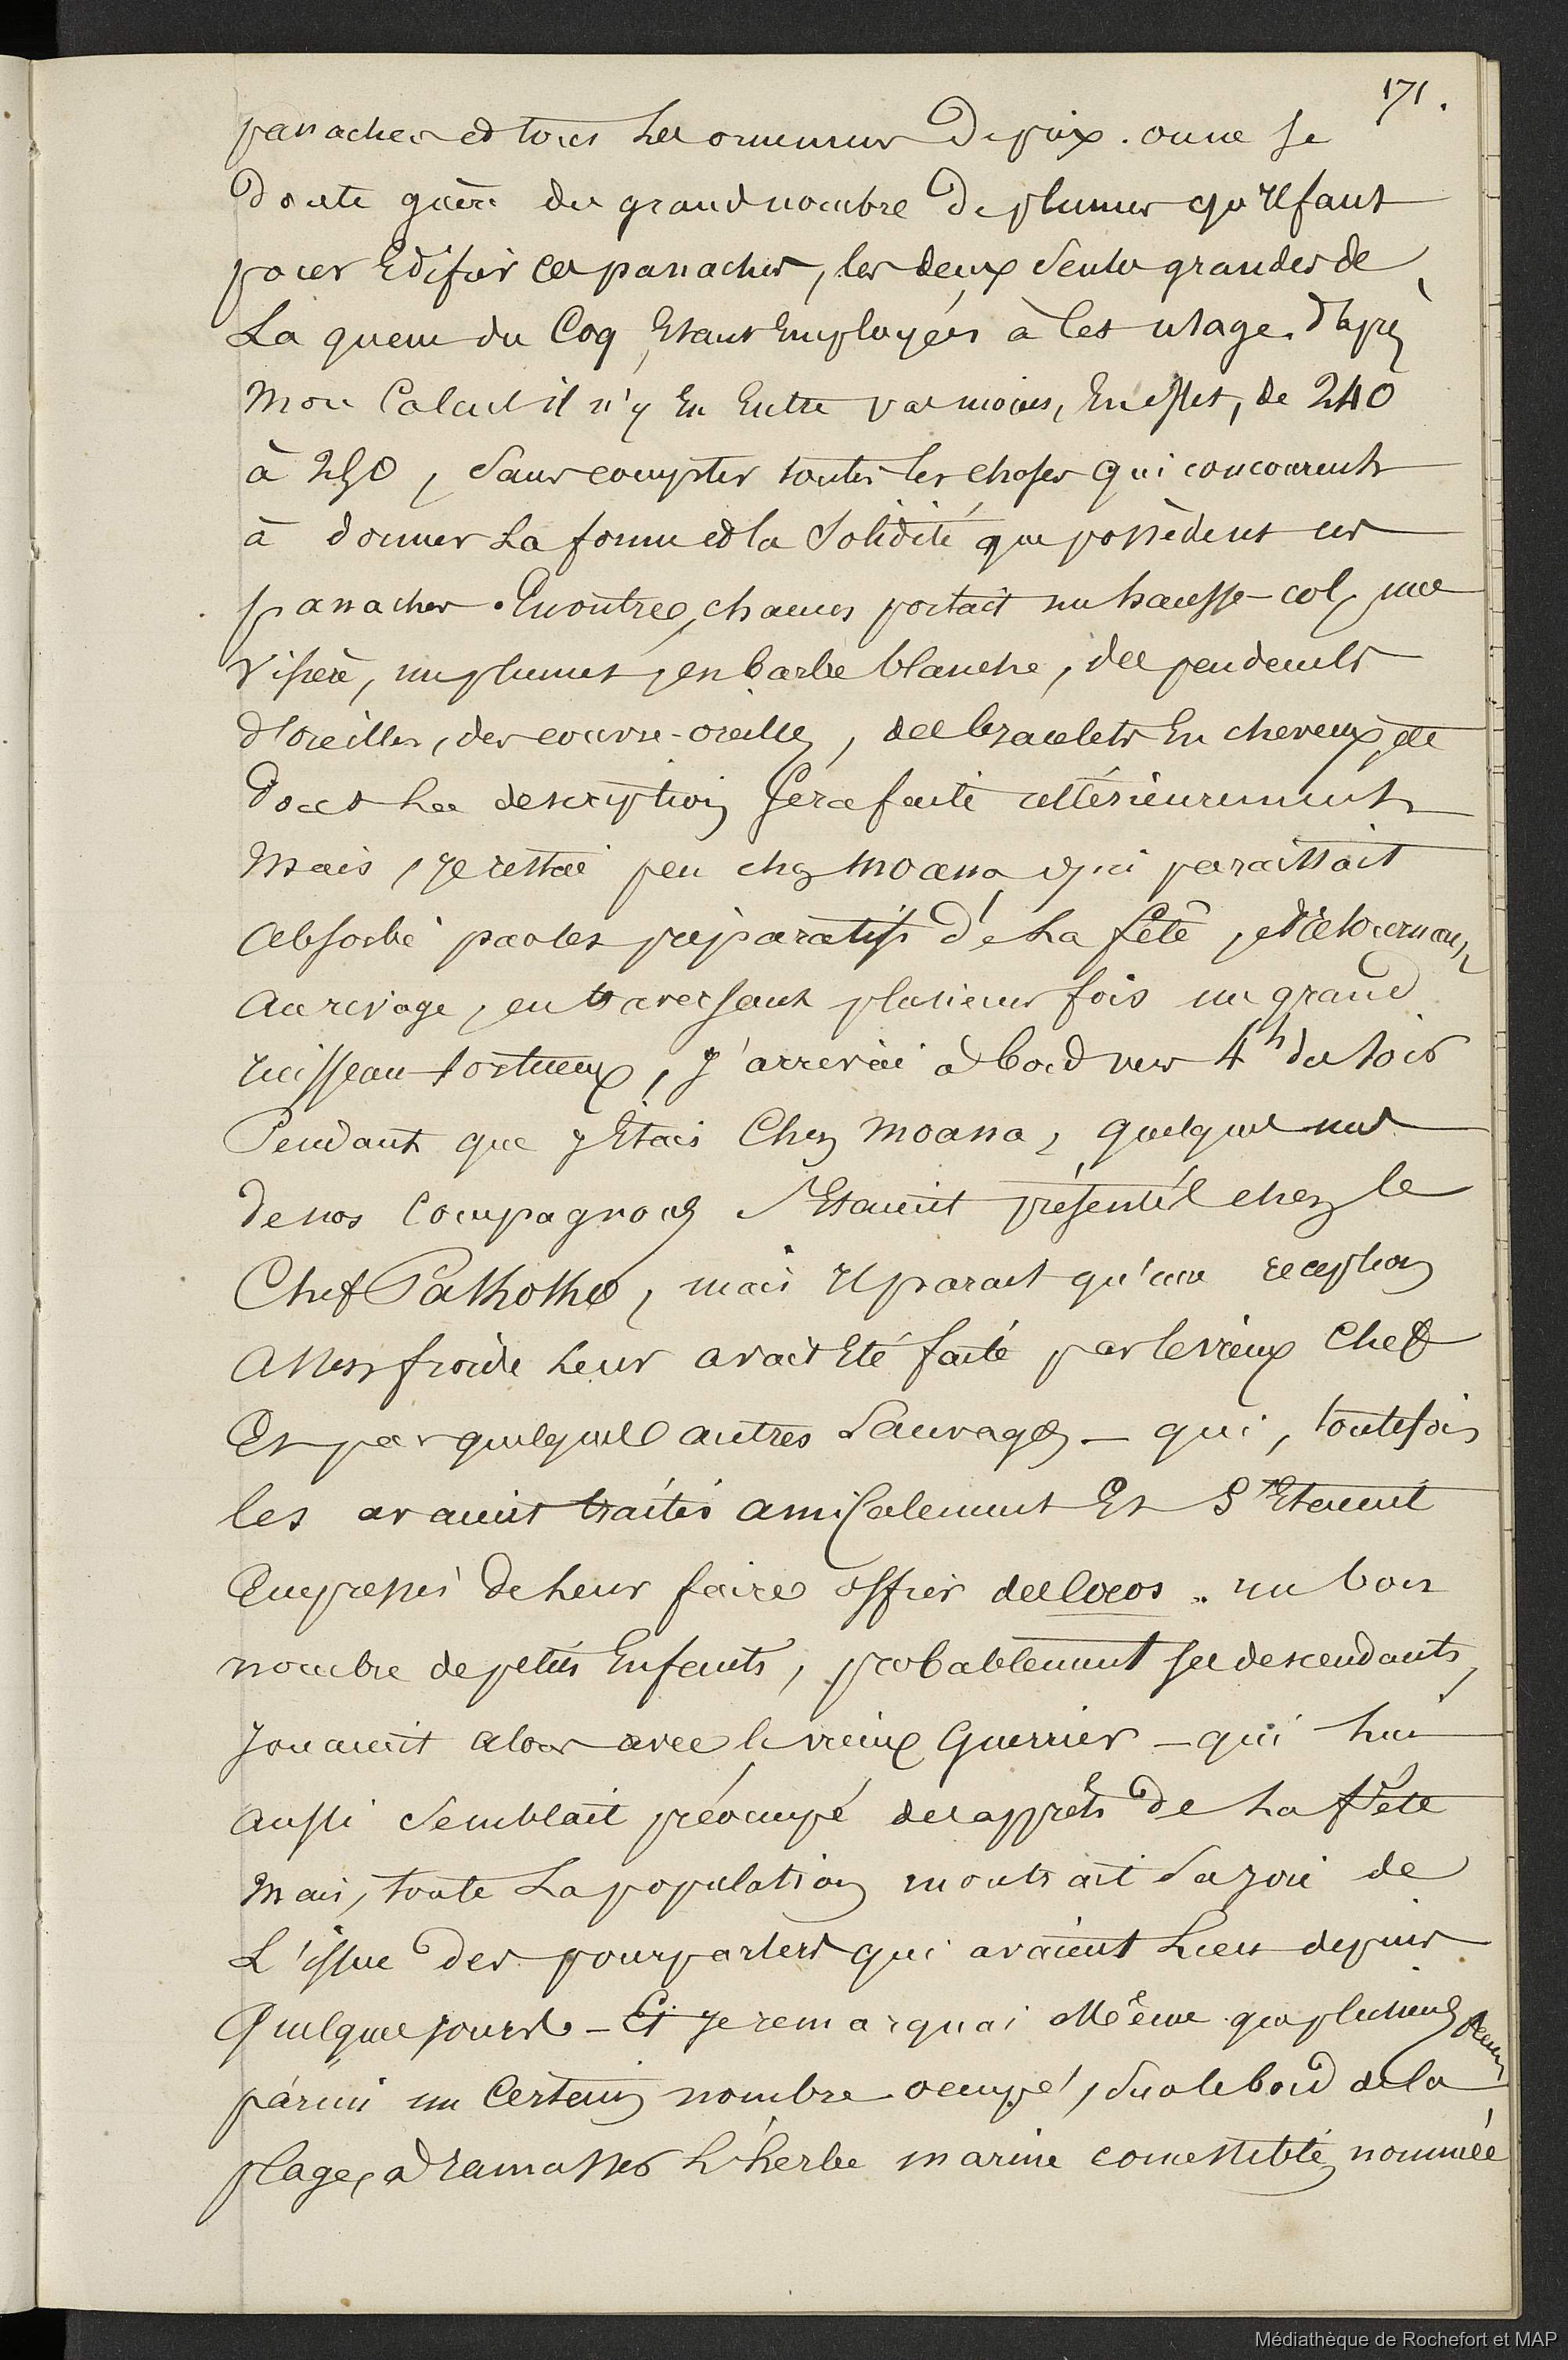 171.
panaches et tous les ornemens de prix. on ne se
doute guère du grand nombre de plumes qu'il faut
pour Edifier ces panaches, les deux seules grandes de
La queue du Coq Etant Employées à cet usage. d'après
Mon Calcul il n'y En Entre pas moins, En effet, de 240
à 250, sans compter toutes les choses qui concourent
à donner La forme et la solidité que possèdent ces
panaches. En outre, chacun portait un hausse-col, une
visière, un plumet, en barbe blanche, des pendents
d'oreilles, des couvre-oreilles, des bracelets En cheveux, etc
dont La description sera faite ultérieurement
Mais, je restai peu chez Moana, qui paraissait
Absorbé par les préparatifs de La fête, et retournant
Au rivage, en traversant plusieurs fois un grand
ruisseau tortueux, j'arrivai à bord vers 4h du soir
Pendant que j'Etais Chez Moana, quelques uns
de nos Compagnons s'Etaient présentés chez le
Chef Pakhoko, mais il parait qu'une reception
Assez froide leur avait Eté faite par le vieux Chef
Et par quelques autres Sauvages - qui, toutefois
les avaient traités amicalement Et s'Etaient
Empressés de leur faire offrir des Cocos. un bon
nombre de petits Enfants, probablement ses descendants,
Jouaient alors avec le vieux Guerrier - qui lui
aussi semblait préocupé des apprêts de La fête
Mais, toute La population montrait sa joie de
L'issue des pourparlers qui avaient Lieu depuis
Quelques jours - Et je remarquai Même que plusieurs
parmi un Certain nombre occupé, sur le bord de la
plage, à ramasser L'herbe marine comestible, nommée
Médiathèque de Rochefort et MAP